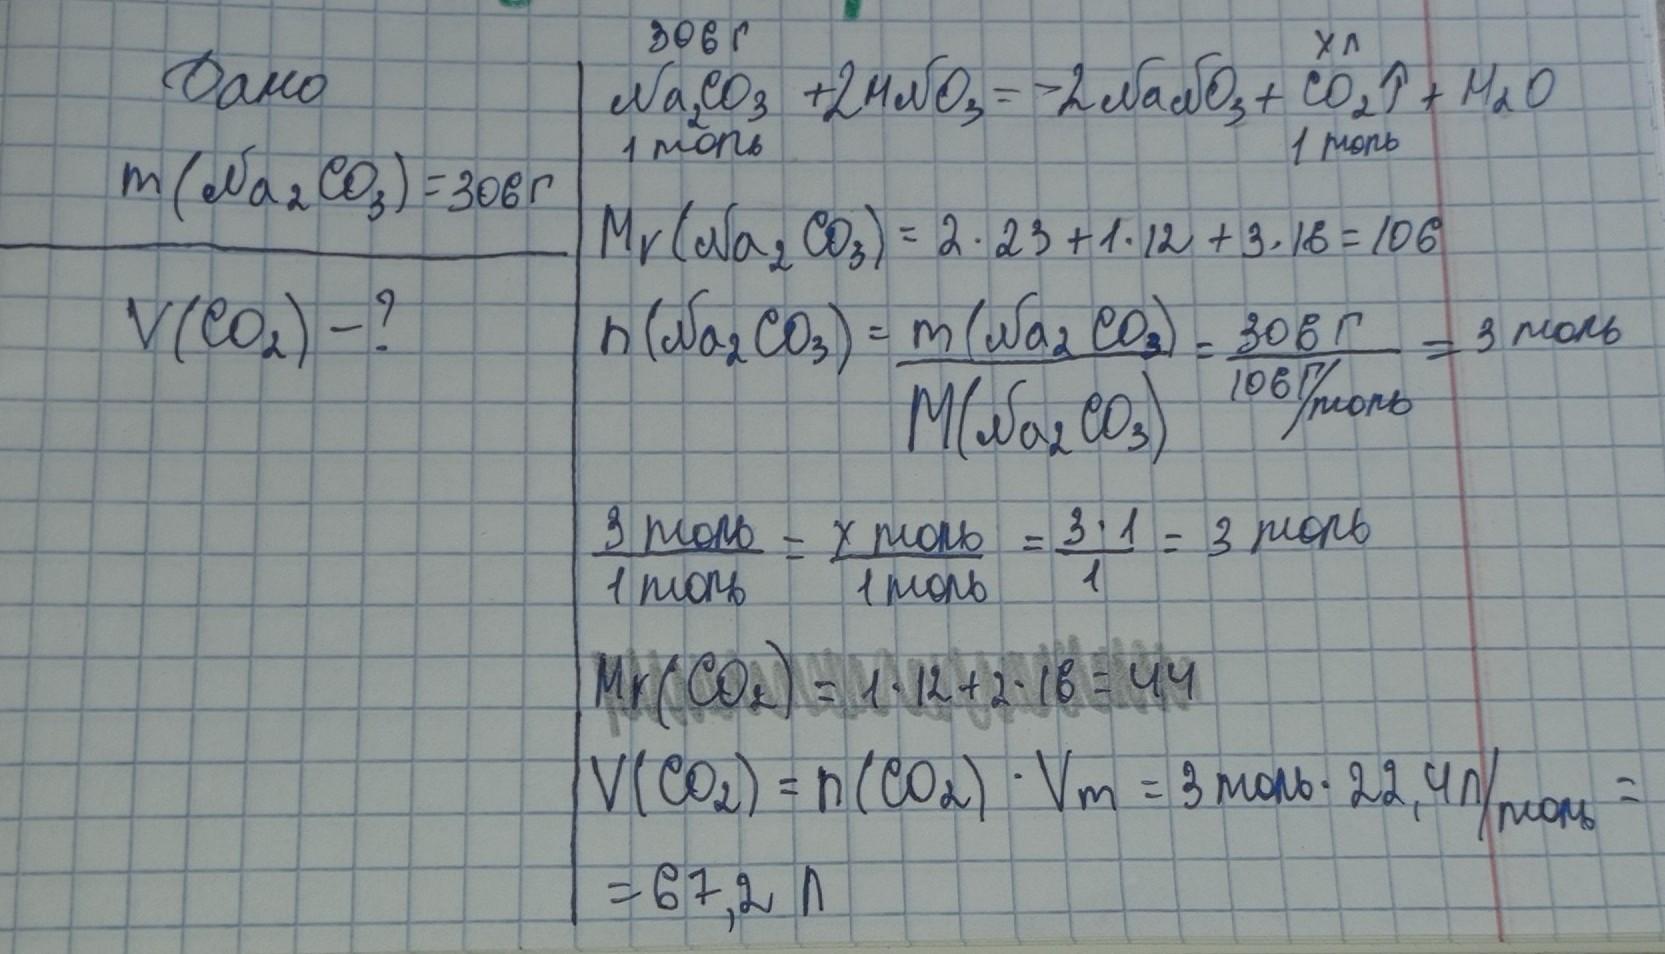 Дано
m(Na₂CO₃)=306г
V(CO₂) – ?
306г
хл
Na₂CO₃ + 2HNO₃ = 2NaNO₃ + CO₂↑ + H₂O
1 моль 1 моль
Mr(Na₂CO₃) = 2·23+1·12+3·16=106
n(Na₂CO₃) = m(Na₂CO₃)/M(Na₂CO₃) = 306г/106г/моль = 3 моль
3 моль/1 моль = х моль/1 моль = 3·1/1 = 3 моль
Mr(CO₂) = 1·12+2·16=44
V(CO₂) = n(CO₂) · Vm = 3 моль · 22,4л/моль =
= 67,2 л